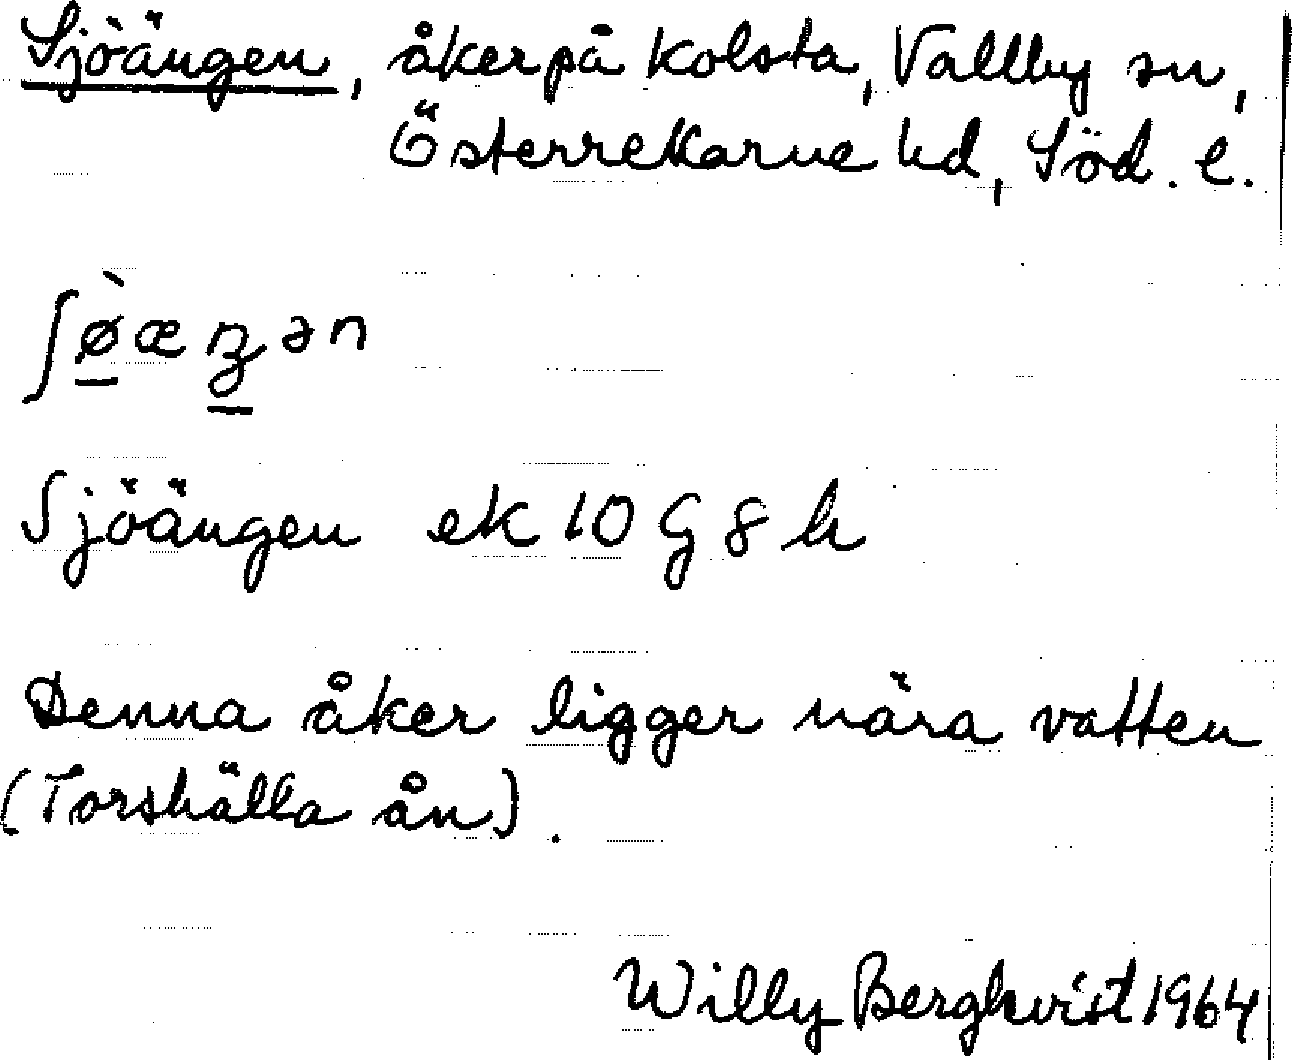 Sjöängen, åker på Kolsta, Vallby sn,
Österrekarne hd, Söd. l.
ʃø̀æŋən
Sjöängen ek 10 G 8 h
Denna åker ligger nära vatten
(Torshälla ån).
Willy Bergkvist 1964